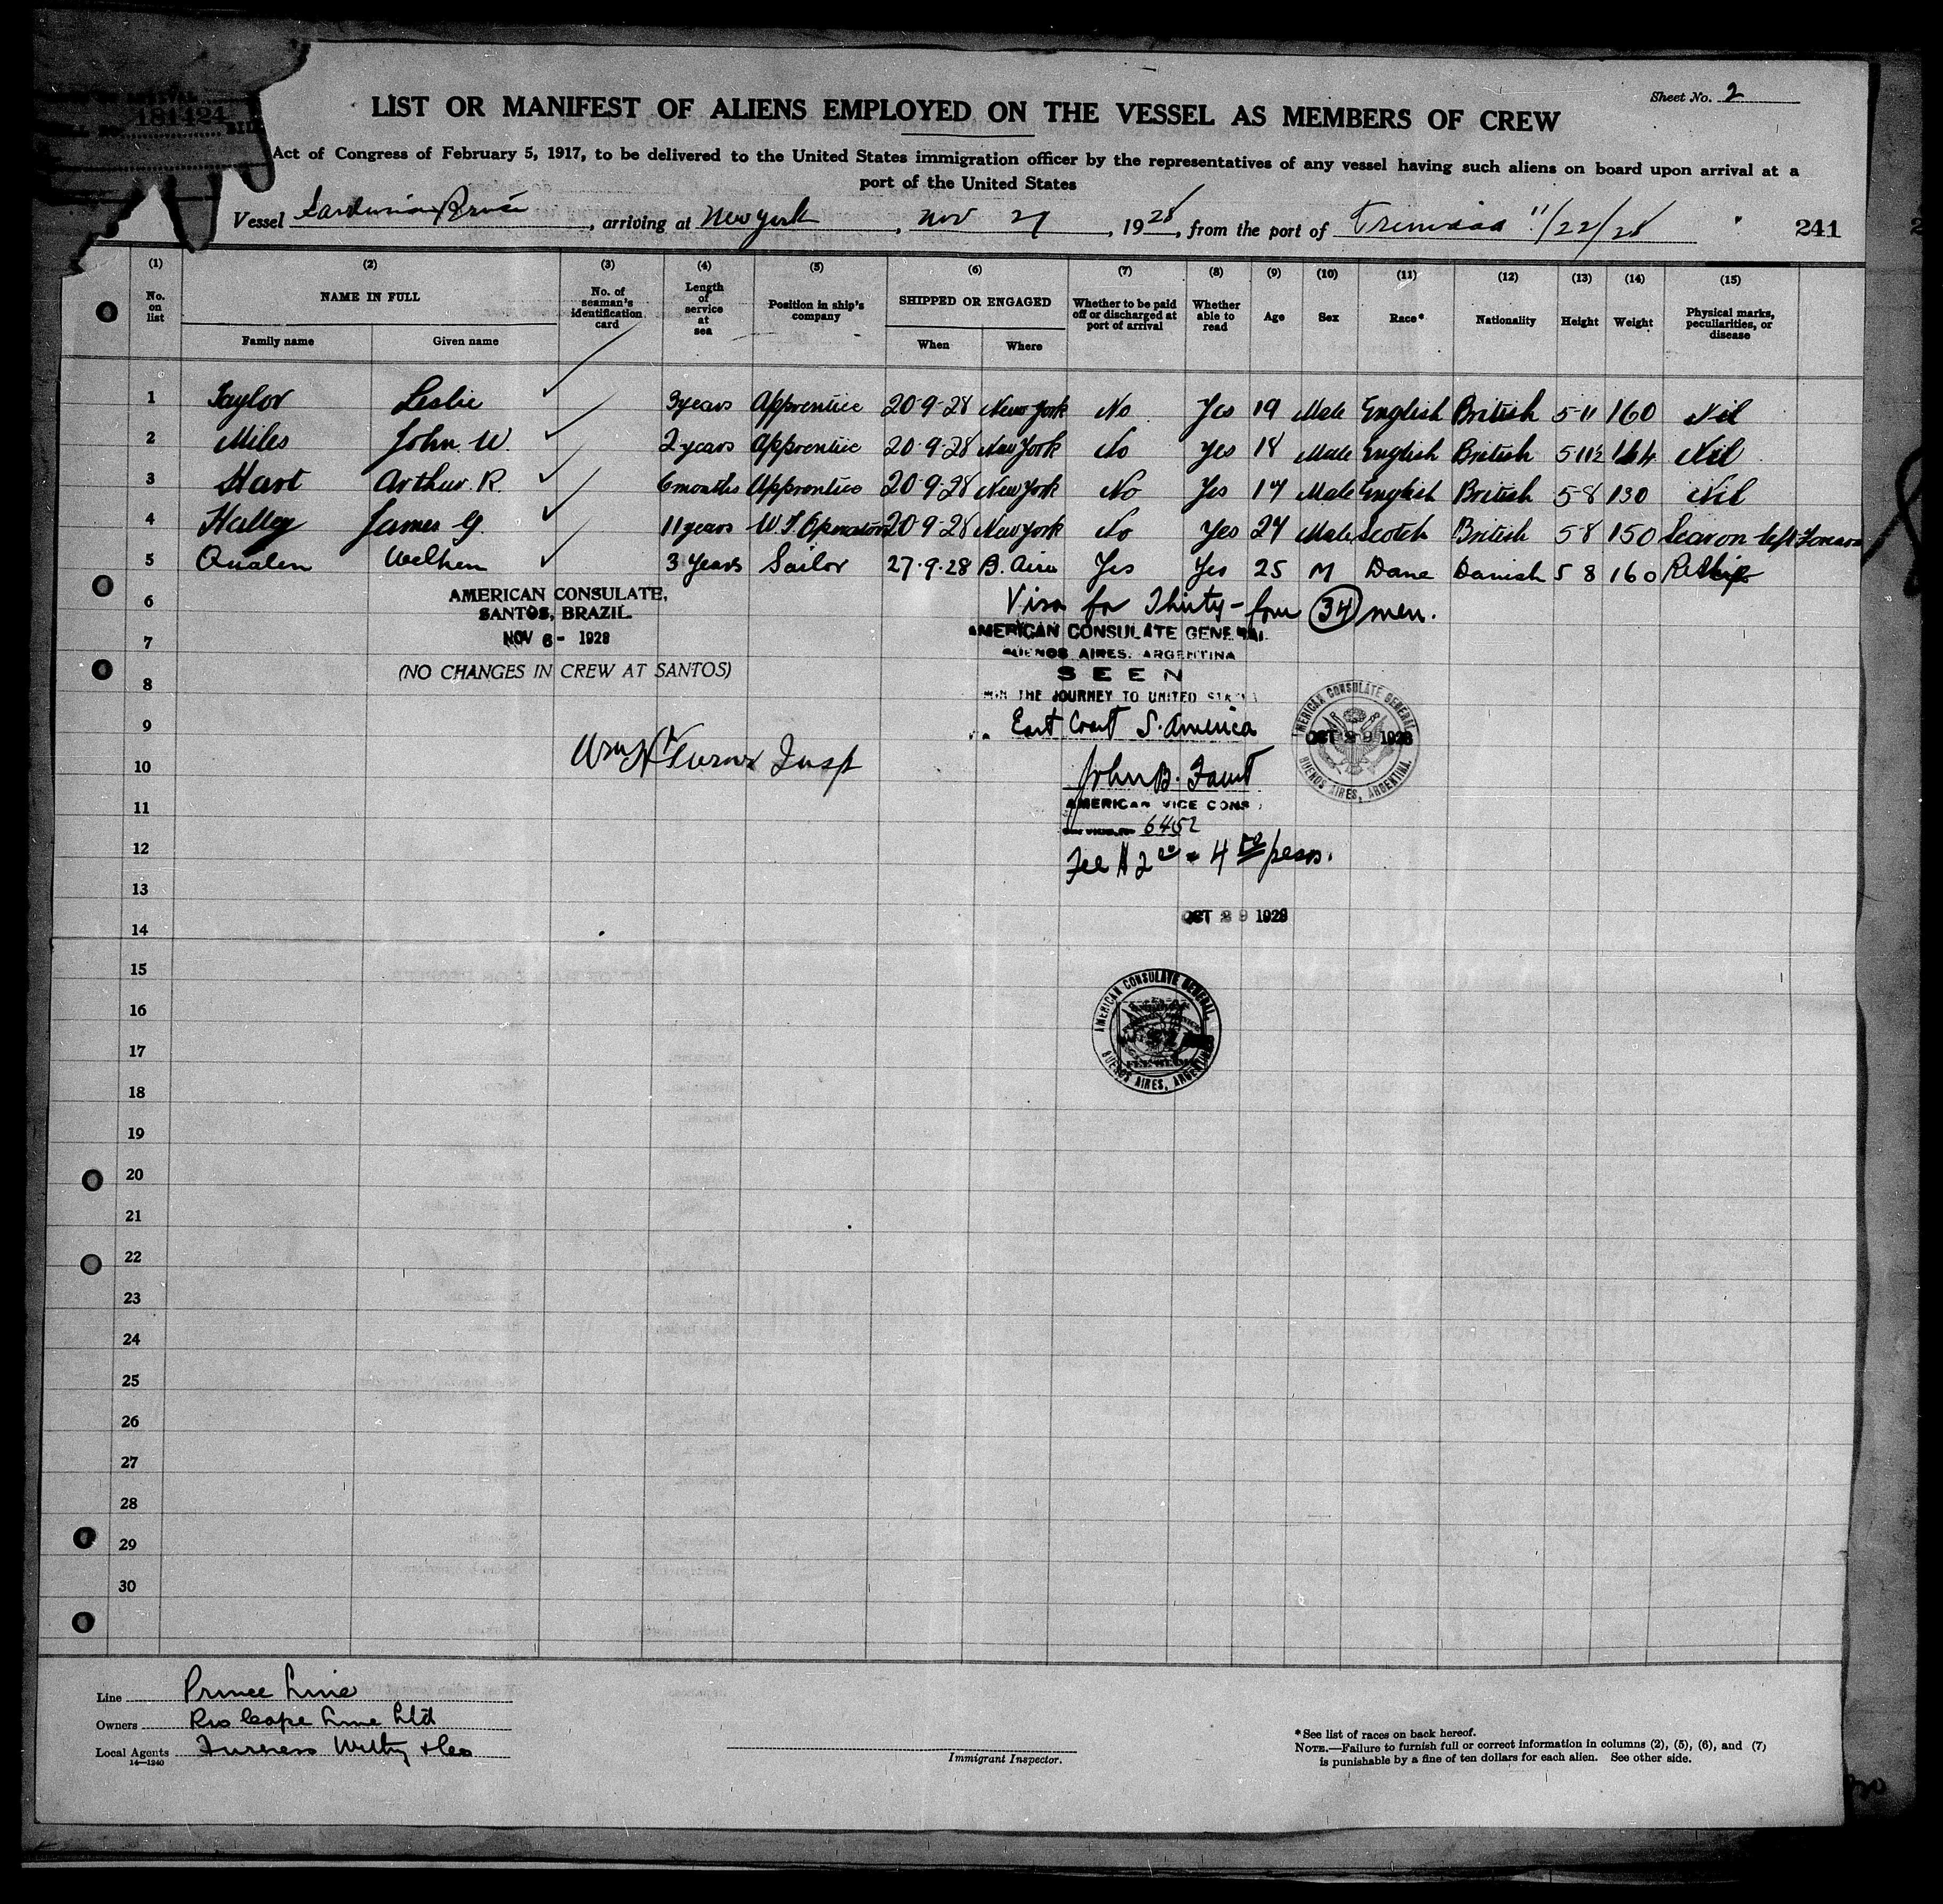 Sheet No. 2
181424
LIST OR MANIFEST OF ALIENS EMPLOYED ON THE VESSEL AS MEMBERS OF CREW
Act of Congress of February 5, 1917, to be delivered to the United States immigration officer by the representatives of any vessel having such aliens on board upon arrival at a
port of the United States
Vessel Sardinian Prince, arriving at New York, Nov 27, 1928, from the port of Trinidad 11/22/28 241
(1) (2) (3) (4) (5) (6) (7) (8) (9) (10) (11) (12) (13) (14) (15)
No. on list NAME IN FULL No. of seaman's identification card Length of service at sea Position in ship's company SHIPPED OR ENGAGED Whether to be paid off or discharged at port of arrival Whether able to read Age Sex Race* Nationality Height Weight Physical marks, peculiarities, or disease
Family name Given name When Where
1 Taylor Leslie 3 years Apprentice 20-9-28 New York No Yes 19 Male English British 5-11 160 Nil
2 Miles John W. 2 years Apprentice 20-9-28 New York No Yes 18 Male English British 5-11½ 144 Nil
3 Hart Arthur R. 6 months Apprentice 20-9-28 New York No Yes 17 Male English British 5-8 130 Nil
4 Halley James G. 11 years W.T. Operator 20-9-28 New York No Yes 27 Male Scotch British 5-8 150 Scar on left Forearm
5 Qualen 3 Years Sailor 27-9-28 B. Aires Yes Yes 25 M Dane Danish 5 8 160
6
7
8
9
10
11
12
13
14
15
16
17
18
19
20
21
22
23
24
25
26
27
28
29
30
AMERICAN CONSULATE,
SANTOS, BRAZIL
NOV 6- 1928
(NO CHANGES IN CREW AT SANTOS)
Insp
Visa for Thirty-four (34) men.
AMERICAN CONSULATE GENERAL
BUENOS AIRES, ARGENTINA
SEEN
THE JOURNEY TO UNITED STATES
East Coast S. America
John B. Faust
AMERICAN VICE CONSUL
6452
Fee $2.00 = 4 pesos.
AMERICAN CONSULATE GENERAL
OCT 29 1928
BUENOS AIRES, ARGENTINA.
OCT 29 1928
AMERICAN CONSULATE GENERAL,
BUENOS AIRES, ARGENTINA
Line Prince Line
Owners Rio Cape Line Ltd
Local Agents Furness Withy & Co
14-1240
Immigrant Inspector.
*See list of races on back hereof.
NOTE.—Failure to furnish full or correct information in columns (2), (5), (6), and (7)
is punishable by a fine of ten dollars for each alien. See other side.